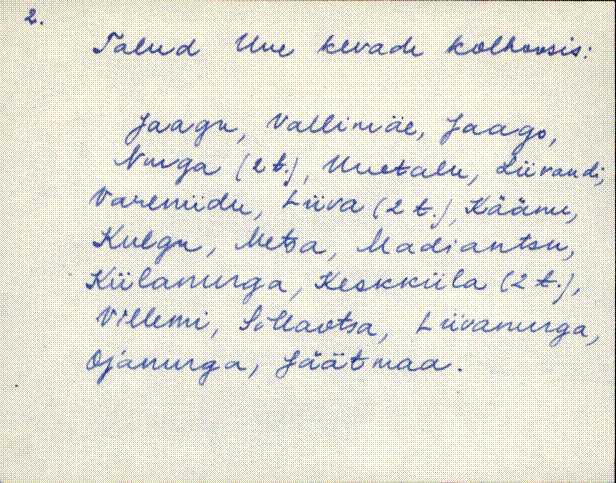 2.
Talud Uue kevade kolhoosis:
Jaagu, Vallimäe, Jaago,
Nurga (2 t.), Uuetalu, Liivandi,
Vareniidu, Liiva (2 t.), Käänu,
Kuegu, Metsa, Madiantsu,
Külanurga, Keskküla (2 t.),
Villemi, Sillaotsa, Liivanurga,
Ojanurga, Jäätmaa.